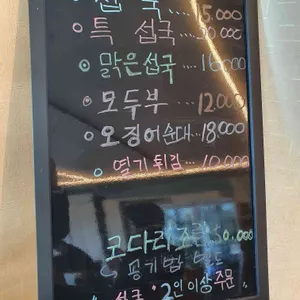 섭국 ... 15,000
• 특 섭국 ... 20,000
• 맑은섭국 ... 16000
• 모두부 ... 12.000
• 오징어순대 .. 18,000
• 열기튀김 ... 10,000
코다리조림 50.000
↳ 공기밥 별도
" 섭국 " 2인 이상 주문 "